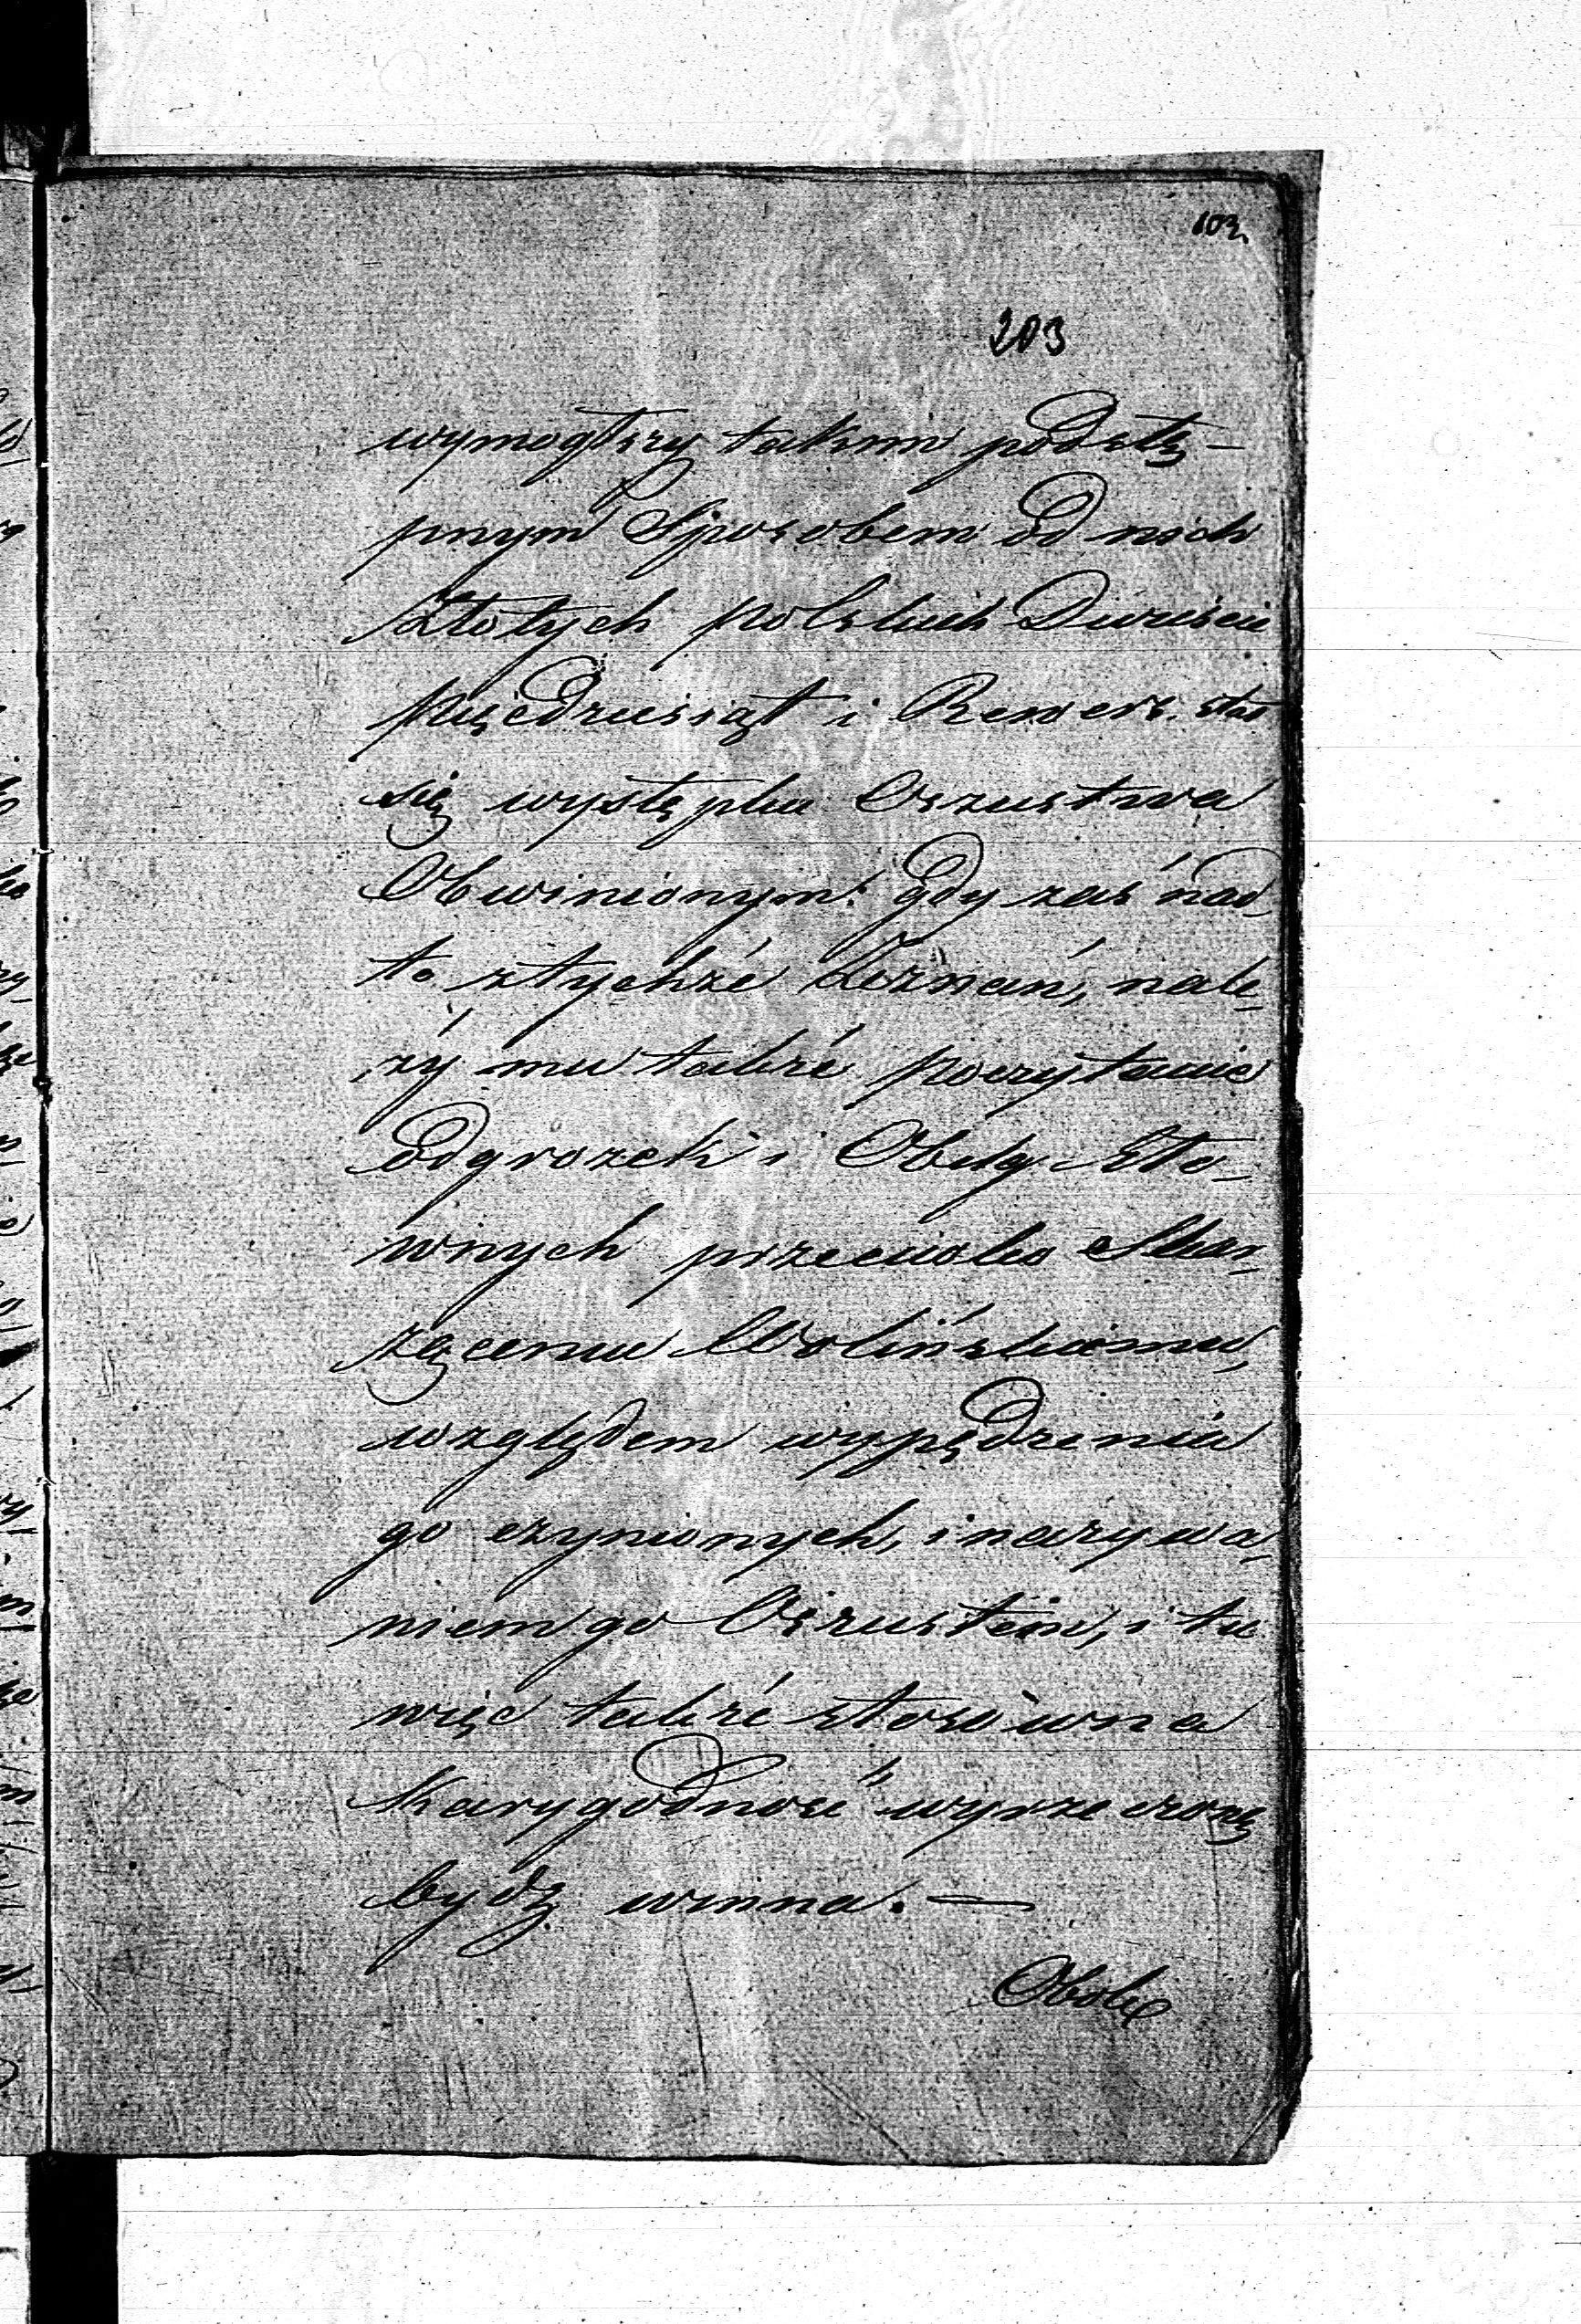 103.
203
wymogłszy takim podstę-
pnym Sposobem od nich
złotych polskich Dwieście
pięćdziesiąt i Rewers. stał
się występku Oszustwa
Obwinionym: gdy zaś nad,
to ztychże Zeznań, nale,
ży mu także poczytanie
odgrożek i Obelg Sło-
wnych przeciwko Skar,
żącemu Wolińskiemu,
względem wypędzenia
go czynionych, i nazywa,
niem go Oszustem, i tu
więc także stosowna
Karygodność wyrzeczoną
bydź winna. —
Obok